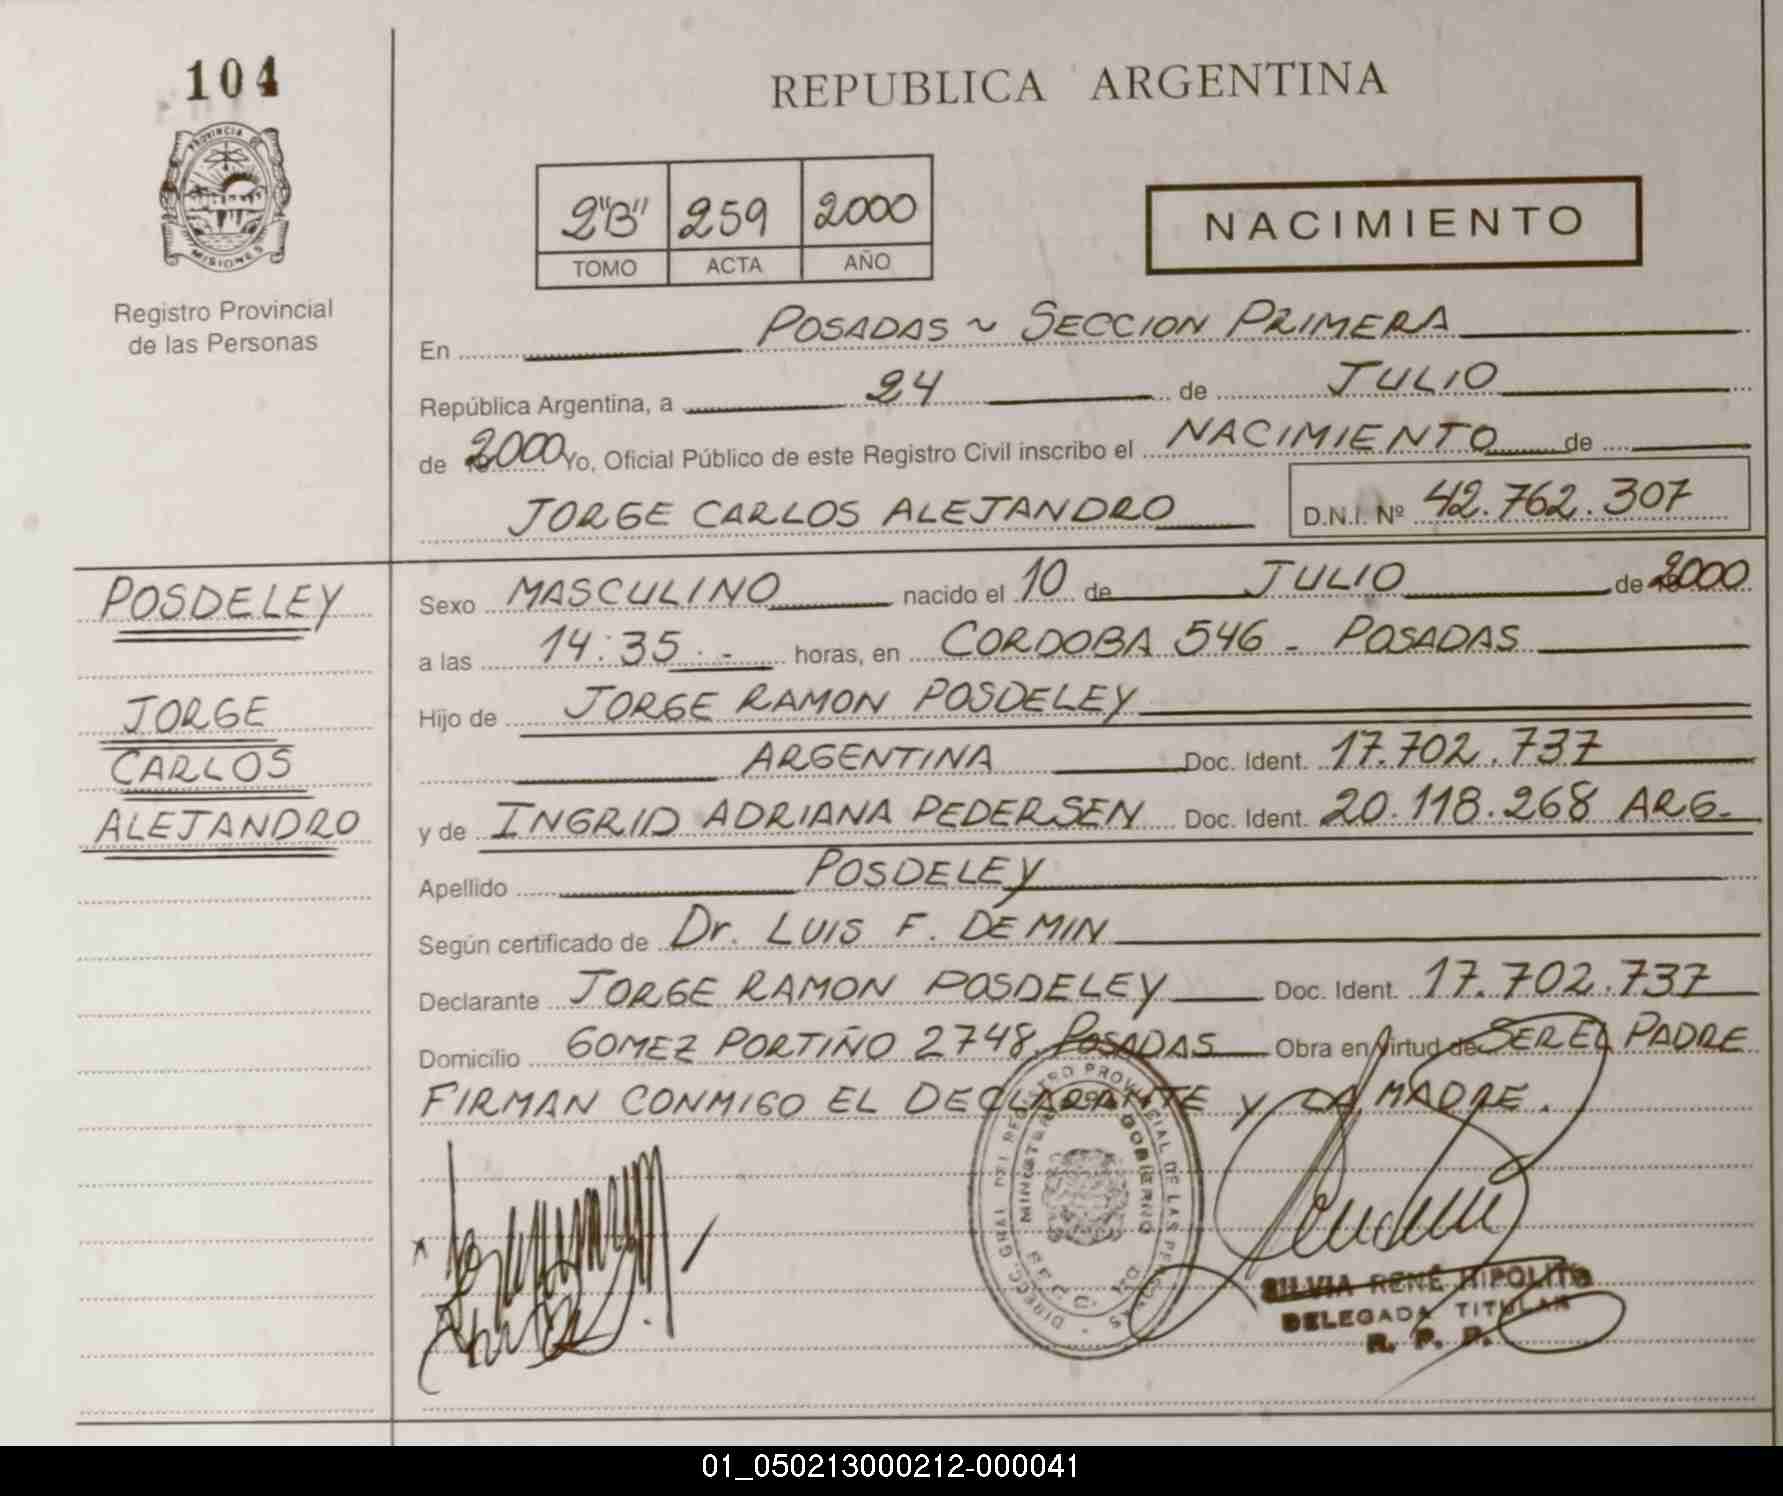 104
PROVINCIA DE
MISIONES
Registro Provincial
de las Personas
REPUBLICA ARGENTINA
2"B" 259 2000
TOMO ACTA AÑO
NACIMIENTO
En POSADAS ~ SECCION PRIMERA
República Argentina, a 24 de JULIO
de 2000 Yo, Oficial Público de este Registro Civil inscribo el NACIMIENTO de
JORGE CARLOS ALEJANDRO D.N.I. Nº 42.762.307
POSDELEY
JORGE
CARLOS
ALEJANDRO
Sexo MASCULINO nacido el 10 de JULIO de 2000
a las 14:35.- horas, en CORDOBA 546 - POSADAS
Hijo de JORGE RAMON POSDELEY
ARGENTINA Doc. Ident. 17.702.737
y de INGRID ADRIANA PEDERSEN Doc. Ident. 20.118.268 ARG.
Apellido POSDELEY
Según certificado de Dr. LUIS F. DEMIN
Declarante JORGE RAMON POSDELEY Doc. Ident. 17.702.737
Domicilio GOMEZ PORTIÑO 2748 POSADAS Obra en virtud de SER EL PADRE
FIRMAN CONMIGO EL DECLARANTE Y LA MADRE.
DIRECC. GRAL. DEL REGISTRO PROVINCIAL DE LAS PERSONAS
MINISTERIO DE GOBIERNO
SILVIA RENÉ HIPOLITO
DELEGADA TITULAR
R. P. P.
01_050213000212-000041